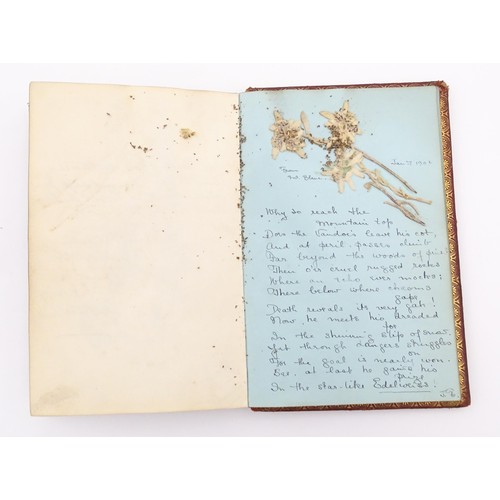 Jan 7 1902
From
Mt Blanc
Why so reach the
Mountain top
Does the leave his cot,
And at peril passes climb
Far beyond the woods of pine
Then o'er cruel rugged rocks
Where an echo ever mocks:
There below where chasms
gape
Death reveals its very
Now, he meets his dreaded
foe
In the slip of snow
Yet through dangers struggles
on
For the goal is nearly won-
See, at last he gains his
prize
In the star-like Edelweiss!